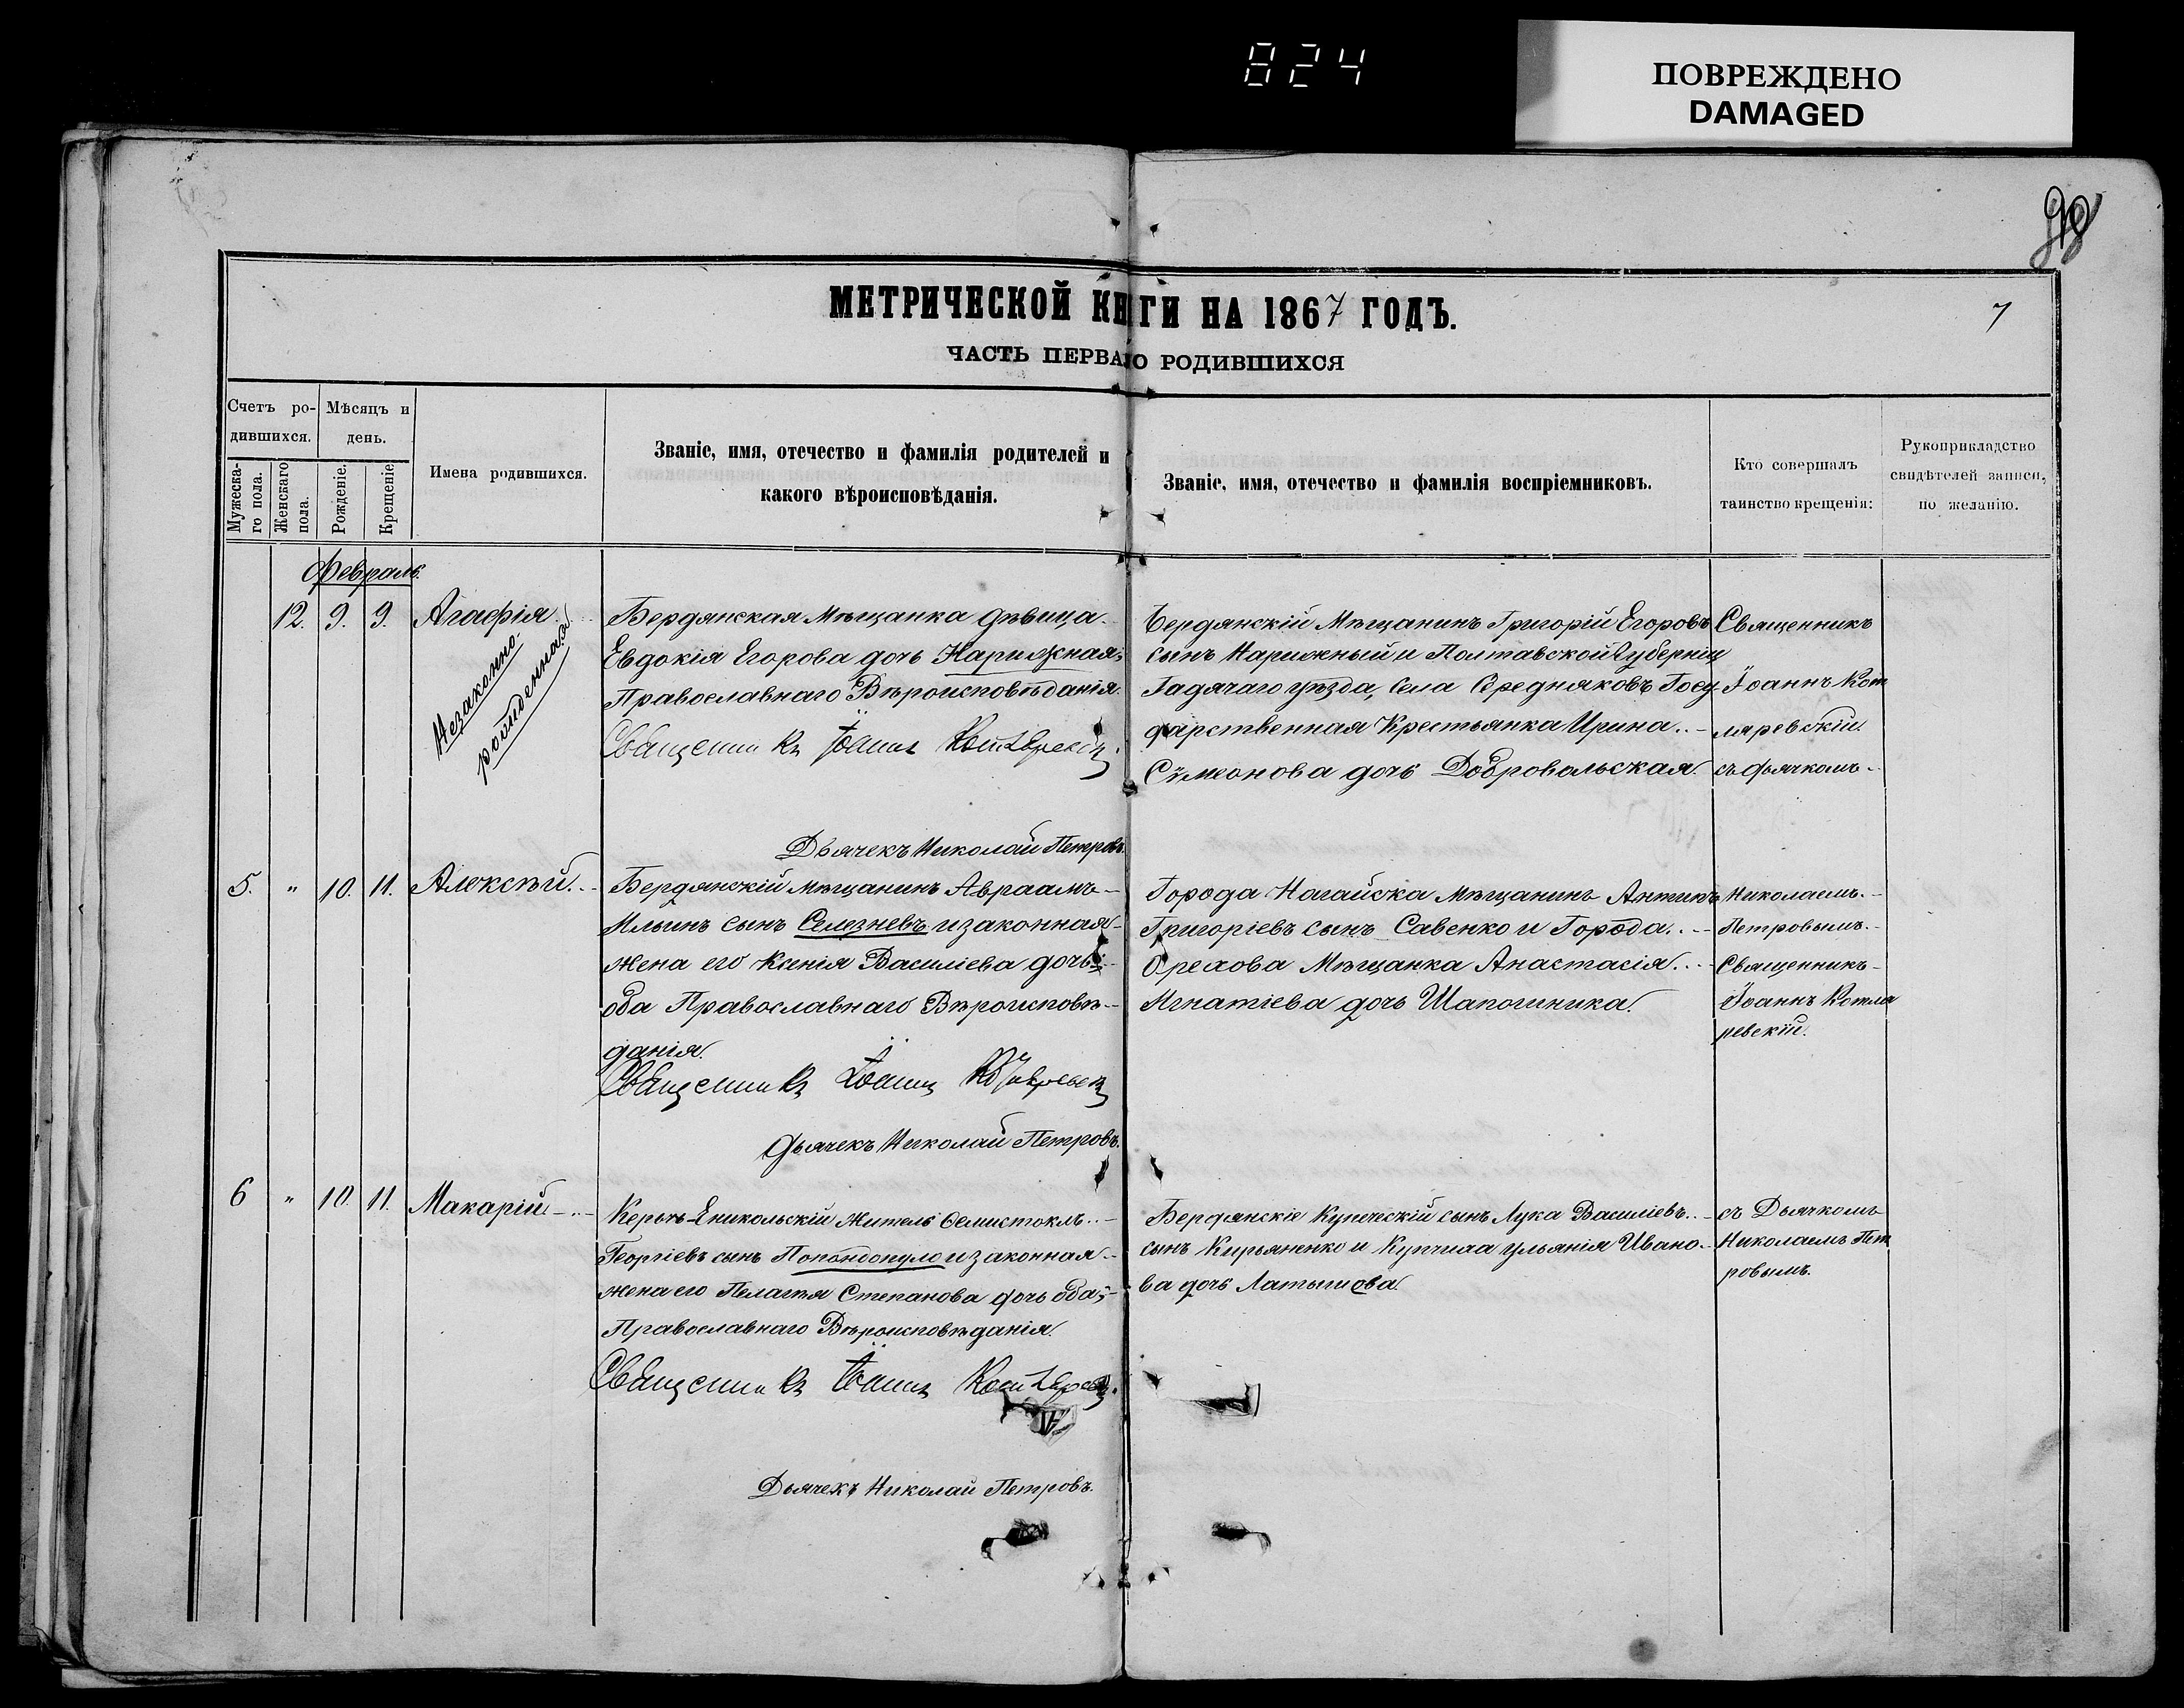 824
ПОВРЕЖДЕНО
DAMAGED
МЕТРИЧЕСКОЙ КНИГИ НА 1867 ГОДЪ.
7
ЧАСТЬ ПЕРВАЯ О РОДИВШИХСЯ
Счетъ ро-
дившихся.
Мѣсяцъ и
день.
Мужеска-
го пола.
Женскаго
пола.
Рожденіе.
Крещеніе.
Имена родившихся.
Званіе, имя, отечество и фамилія родителей и
какого вѣроисповѣданія.
Званіе, имя, отечество и фамилія воспріемниковъ.
Кто совершалъ
таинство крещенія:
Рукоприкладство
свидѣтелей записи,
по желанію.
Февраль.
12. 9. 9. Агафія.
Незаконно-
рожденная.
Бердянская Мѣщанка дѣвица
Евдокія Егорова дочь Нарижная;
Православнаго Вѣроисповѣданія.
Священникъ Іоаннъ Котляревскій.
Дьячекъ Николай Петровъ.
Бердянскій Мѣщанинъ Григорій Егоровъ
сынъ Нарижный и Полтавской Губерніи
Гадячаго уѣзда, Села Середняковъ Госу-
дарственная Крестьянка Ирина
Сѵмеонова дочь Добровольская.
Священникъ
Іоаннъ Кот
ляревскій.
съ дьячкомъ
5. " 10. 11. Алексѣй.
Бердянскій Мѣщанинъ Авраамъ
Ильинъ сынъ Селезневъ и законная
жена его Ксенія Василіева дочь;
оба Православнаго Вѣроисповѣ-
данія.
Священникъ Іоаннъ Котляревскій
Дьячекъ Николай Петровъ.
Города Нагайска Мѣщанинъ Антипъ
Григоріевъ сынъ Савенко и Города
Орехова Мѣщанка Анастасія
Игнатіева дочь Шапошника.
Николаемъ
Петровымъ.
Священникъ
Іоаннъ Котля
ревскій.
6 " 10. 11. Макарій
Керчь-Еникольскій житель Ѳемистоклъ
Георгіевъ сынъ Попандопуло и законная
жена его Пелагія Степанова дочь оба;
Православнаго Вѣроисповѣданія.
Священникъ Іоаннъ Котляревскій.
Дьячекъ Николай Петровъ.
Бердянскіе Купеческій сынъ Лука Василіевъ
сынъ Кирьяненко и Купчиха Ульянія Ивано-
ва дочь Латышова.
съ Дьячкомъ
Николаемъ Пет
ровымъ.